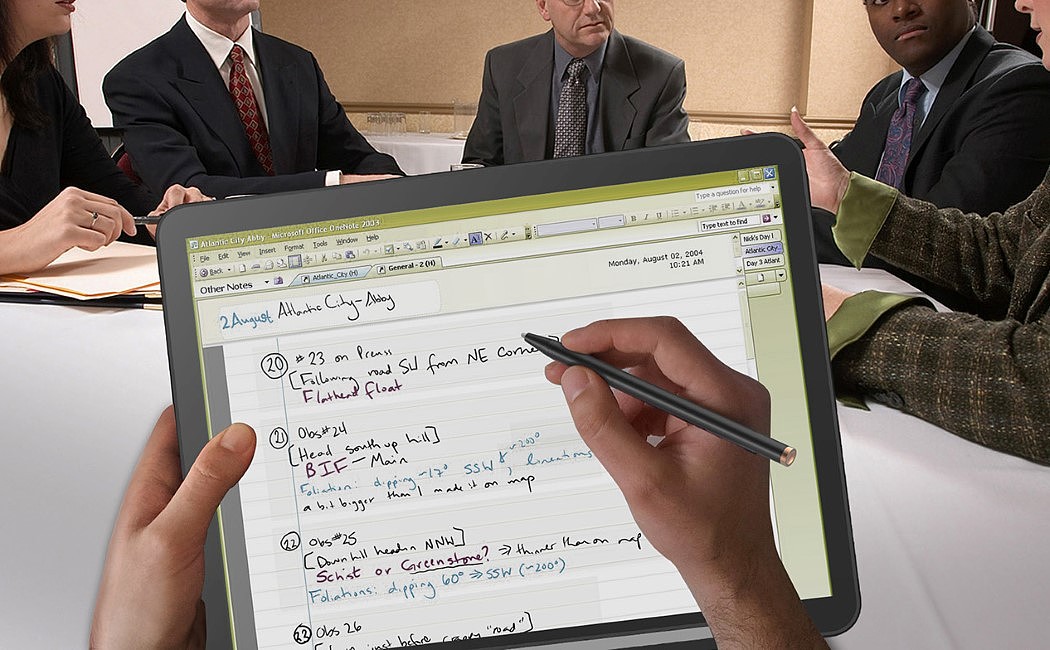 Atlantic City Abby - Microsoft Office OneNote 2003
Type a question for help
File Edit View Insert Format Tools Window Help
Back
B I U
Type text to find
Other Notes
Atlantic_City (H)
General - 2 (H)
Nick's Day I
Atlantic City-
Day 3 Atlant
Monday, August 02, 2004
10:21 AM
2 August Atlantic City - Abby
20 #23 on Precuss
[Following road SW from NE corner]
Flathead float
21 Obs#24
[Head south up hill]
BIF - Main
Foliation: dipping ~17° SSW ~200°; lineations
a bit bigger than I made it on map
22 Obs#25
[Downhill headin NNW]
Schist or Greenstone? → thinner than on map
Foliations: dipping 60° → SSW (~200°)
22 Obs 26
just before crappy "road"]